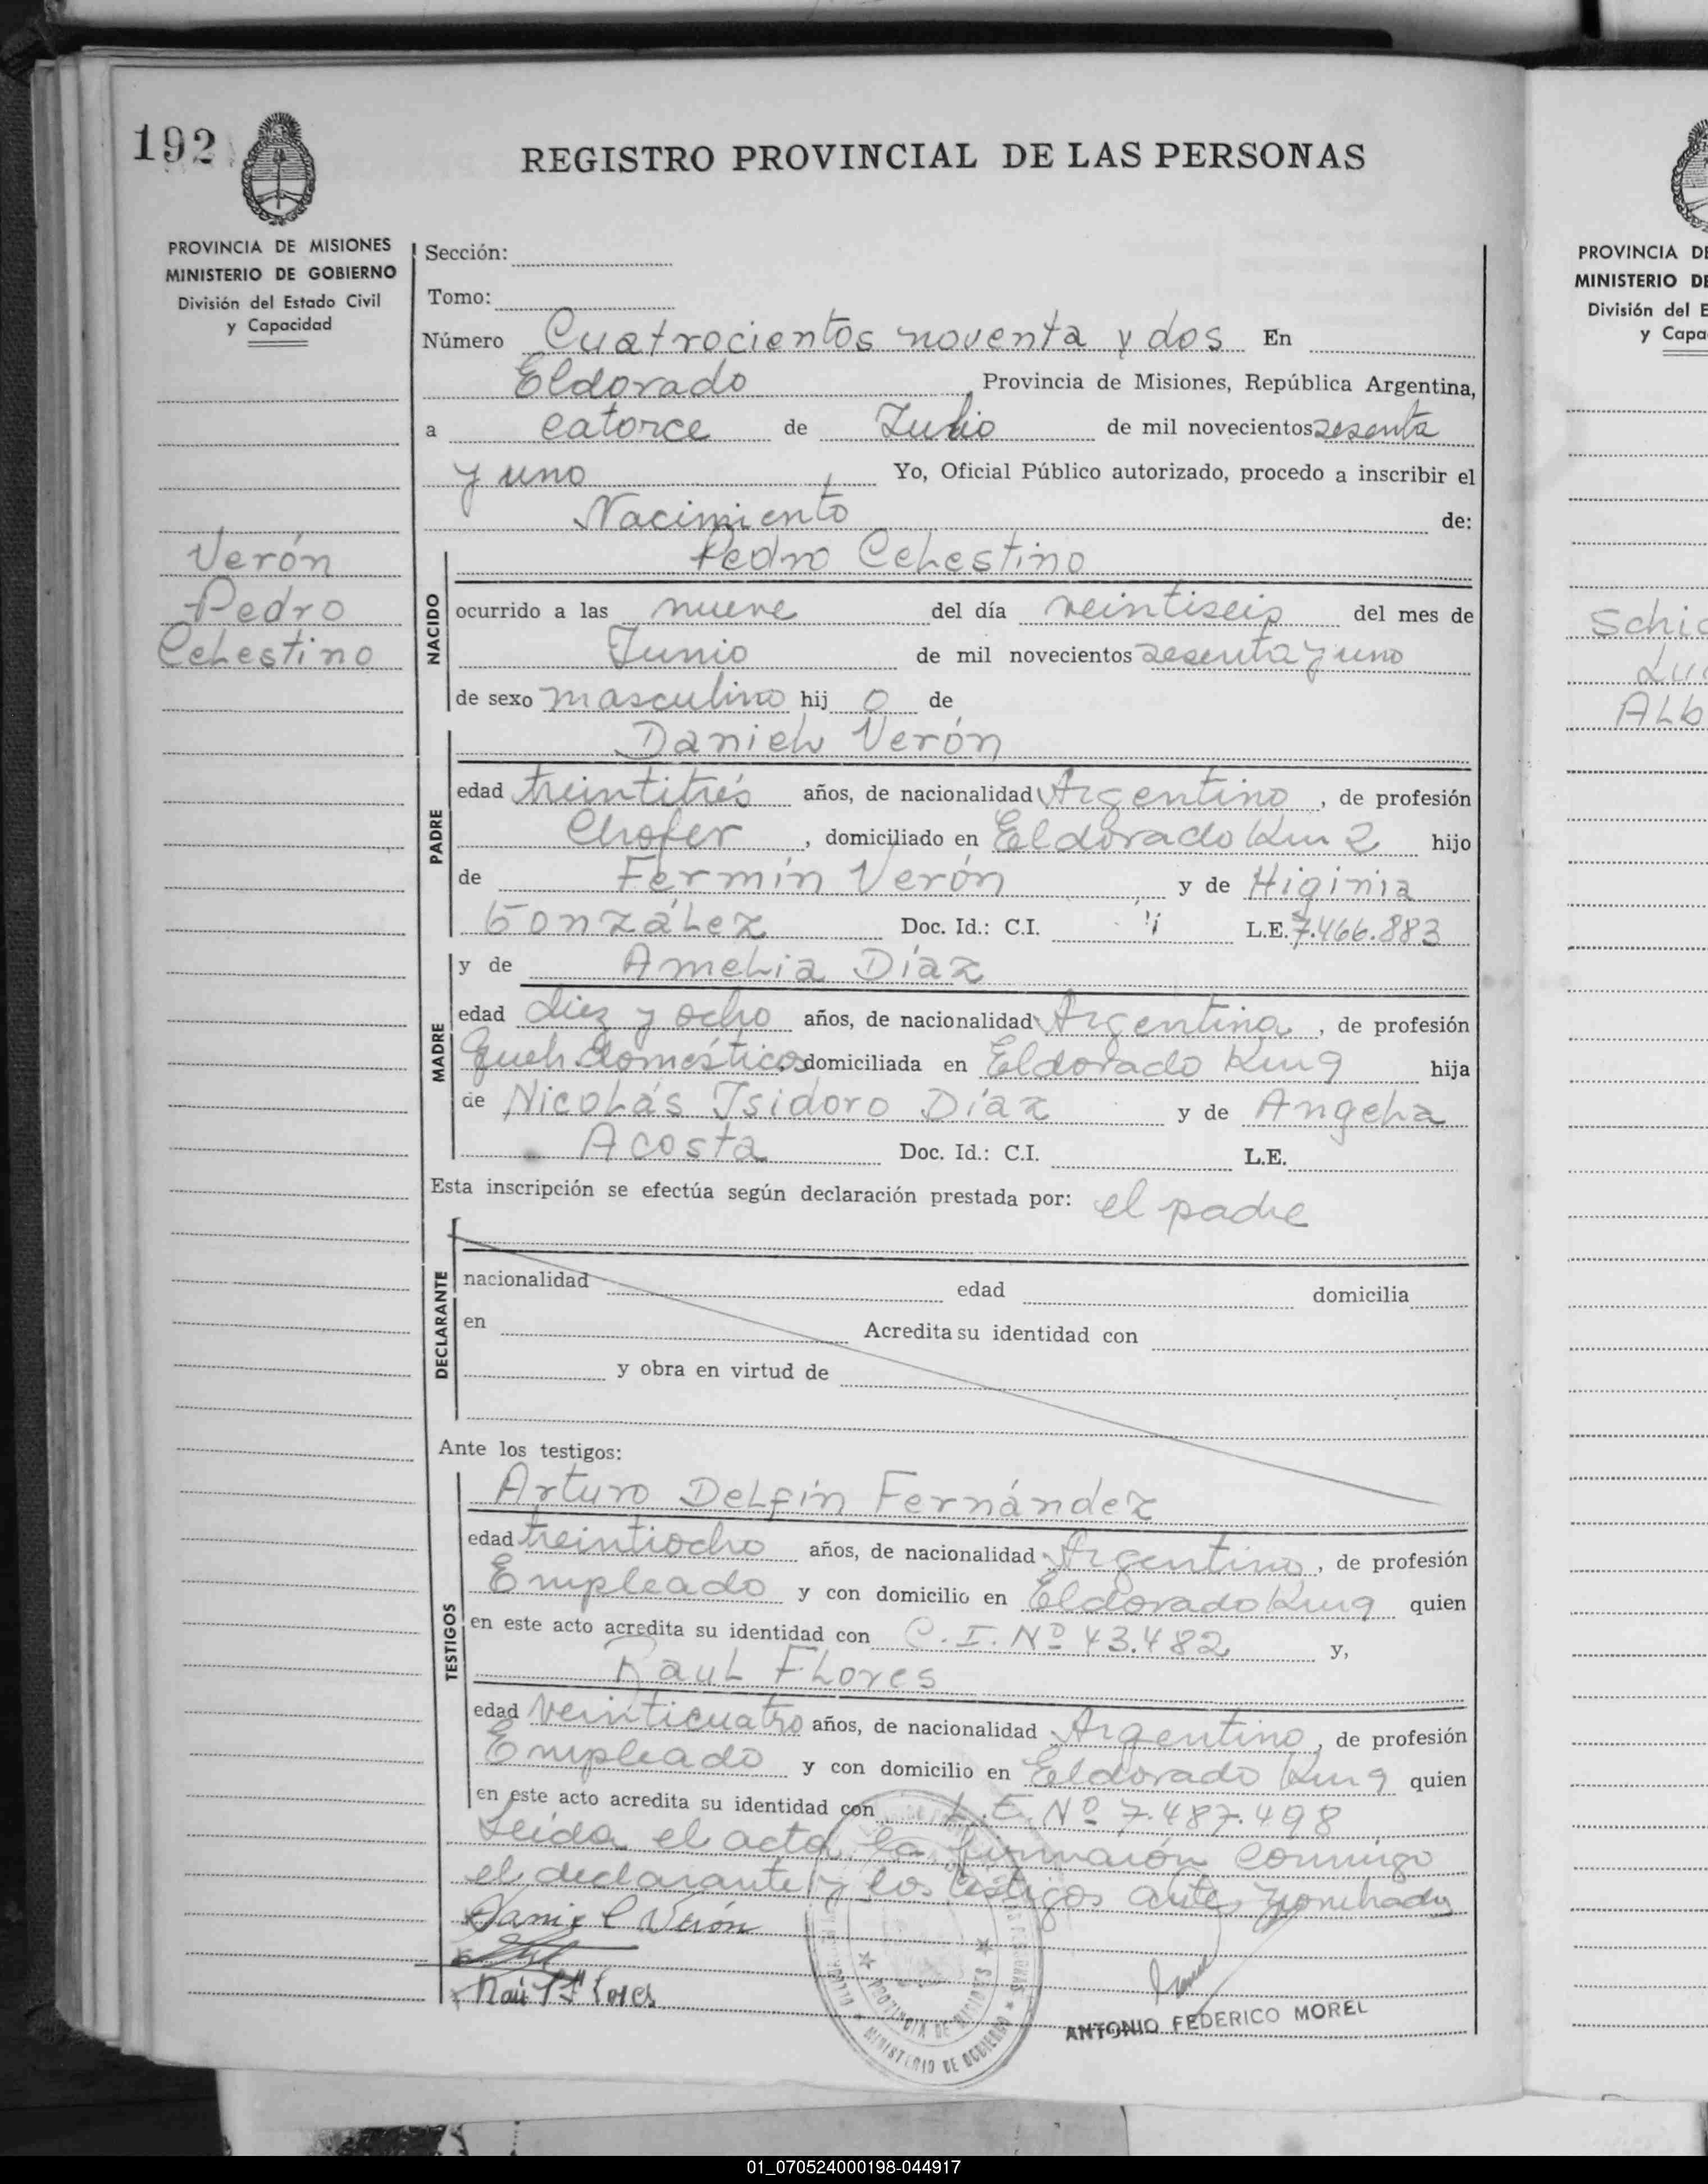 192
REGISTRO PROVINCIAL DE LAS PERSONAS
PROVINCIA DE MISIONES
MINISTERIO DE GOBIERNO
División del Estado Civil
y Capacidad
Verón
Pedro
Celestino
Sección:
Tomo:
Número Cuatrocientos noventa y dos En
Eldorado Provincia de Misiones, República Argentina,
a catorce de Julio de mil novecientos sesenta
y uno Yo, Oficial Público autorizado, procedo a inscribir el
Nacimiento de:
Pedro Celestino
NACIDO
ocurrido a las nueve del día veintiseis del mes de
Junio de mil novecientos sesenta y uno
de sexo masculino hij o de
Daniel Verón
PADRE
edad treintitrés años, de nacionalidad Argentino, de profesión
Chofer, domiciliado en Eldorado Km 2 hijo
de Fermín Verón y de Higinia
González Doc. Id.: C.I. L.E. 7.466.883
y de Amelia Díaz
MADRE
edad diez y ocho años, de nacionalidad Argentina, de profesión
Queh. domésticos domiciliada en Eldorado Km 9 hija
de Nicolás Isidoro Díaz y de Angela
Acosta Doc. Id.: C.I. L.E.
Esta inscripción se efectúa según declaración prestada por: el padre
DECLARANTE
nacionalidad edad domicilia
en Acredita su identidad con
y obra en virtud de
Ante los testigos:
Arturo Delfín Fernández
TESTIGOS
edad treintiocho años, de nacionalidad Argentino, de profesión
Empleado y con domicilio en Eldorado Km 9 quien
en este acto acredita su identidad con C.I. Nº 43.482 y,
Raul Flores
edad veinticuatro años, de nacionalidad Argentino, de profesión
Empleado y con domicilio en Eldorado Km 9 quien
en este acto acredita su identidad con L.E. Nº 7.487.498
Leída el acta la firmaron conmigo
el declarante y los testigos ante
Daniel Verón
Raul Flores
PROVINCIA DE MISIONES
MINISTERIO DE GOBIERNO
ANTONIO FEDERICO MOREL
PROVINCIA DE
MINISTERIO DE
División del E
y Capa
Schi
Lu
Alb
01_070524000198-044917